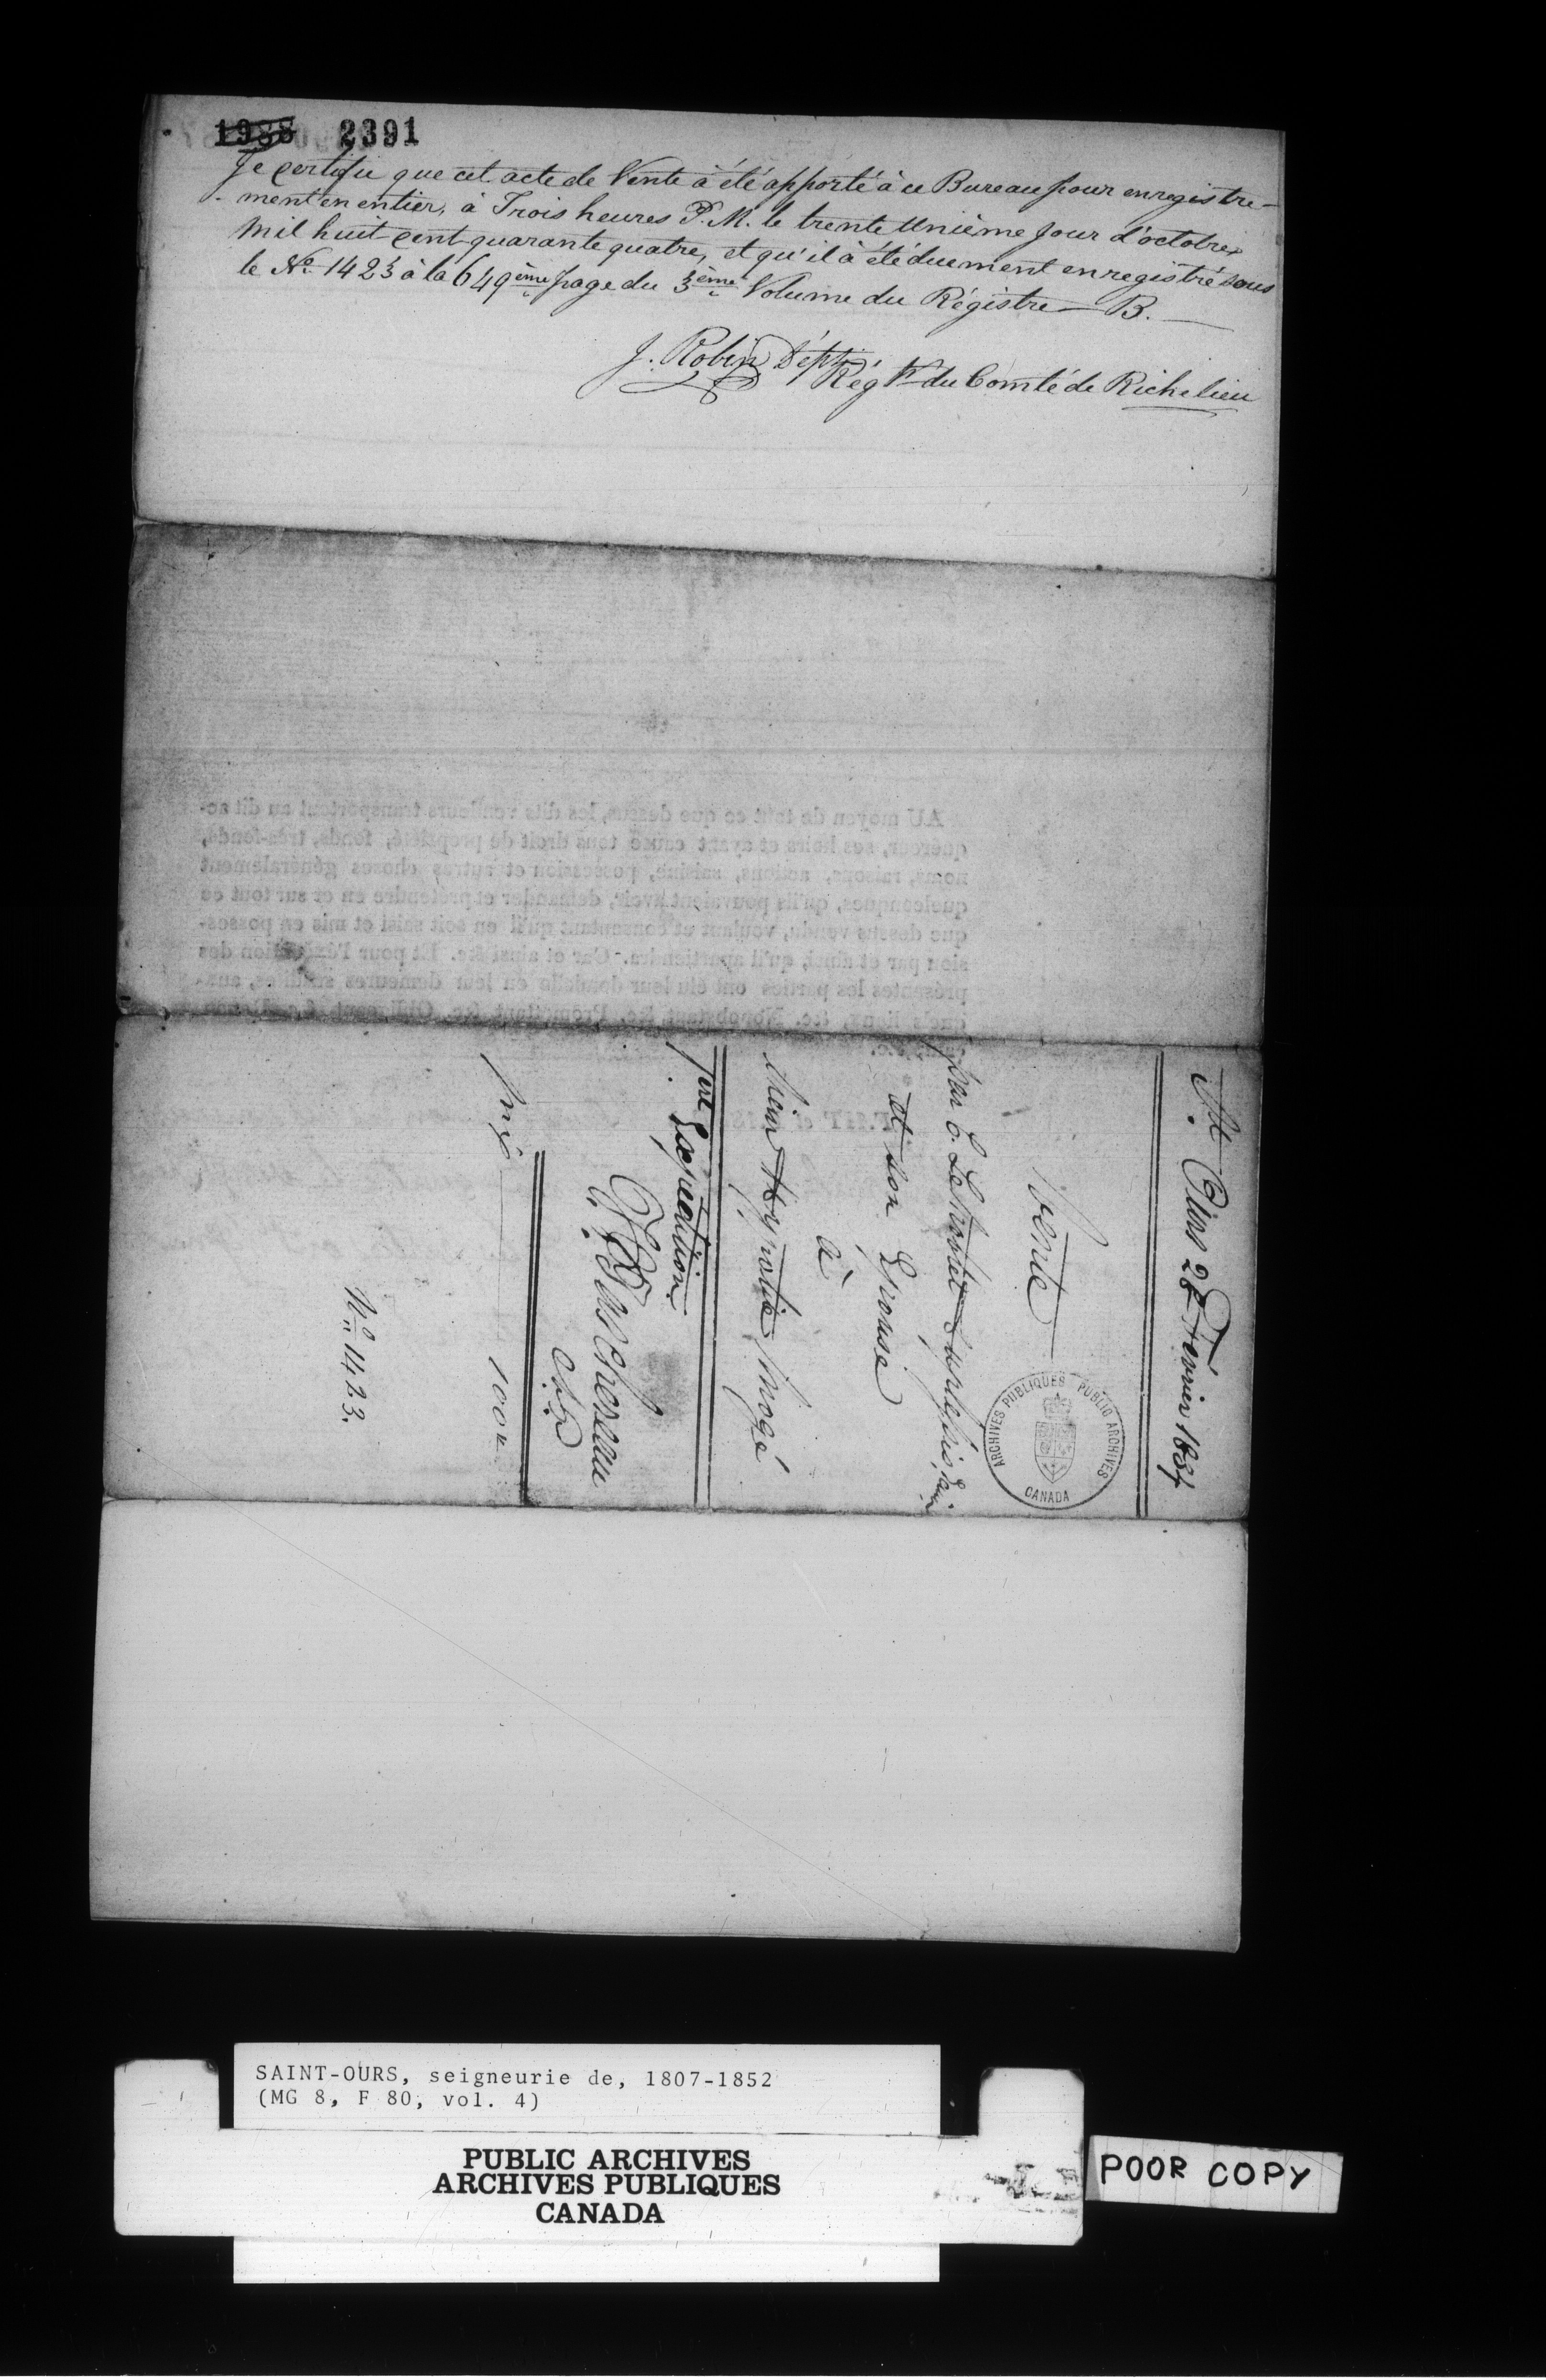 1988 2391
Je certifie que cet acte de Vente à été apporté à ce Bureau pour enregistre-
-ment en entier, à Trois heures P. M. le trente Unième Jour d'octobre
Mil huit cent quarante quatre, et qu'il à été duement enregistré sous
le No. 1423 à la 649ème page du 3ème Volume du Régistre B.
J. Robin Dépt.
Régtr du Comté de Richelieu
AU moyen de tout ce que dessus, les dits vendeurs transportent au dit ac-
quéreur, ses hoirs et ayant cause tous droit de propriété, fonds, très-fonds,
noms, raisons, actions, saisine, possession et autres choses généralement
quelconques, qu'ils pouvaient avoir, demander et prétendre en et sur tout ce
que dessus vendu, voulant et consentant qu'il en soit saisi et mis en posses-
sion par et ainsi, qu'il apartiendra. Car et ainsi &c. Et pour l'exécution des
présentes les parties ont élu leur domicile en leur demeures susdites, aux-
quels lieux, &c. Nonobstant &c. Promettant &c. Obligeant &c.
St Ours 28 Fevrier 1834
Vente
par
et son Epouse
à
Sieur Hypolite
1ere Expedition
prix 100
No. 1423.
ARCHIVES PUBLIQUES PUBLIC ARCHIVES
CANADA
SAINT-OURS, seigneurie de, 1807-1852
(MG 8, F 80, vol. 4)
PUBLIC ARCHIVES
ARCHIVES PUBLIQUES
CANADA
POOR COPY